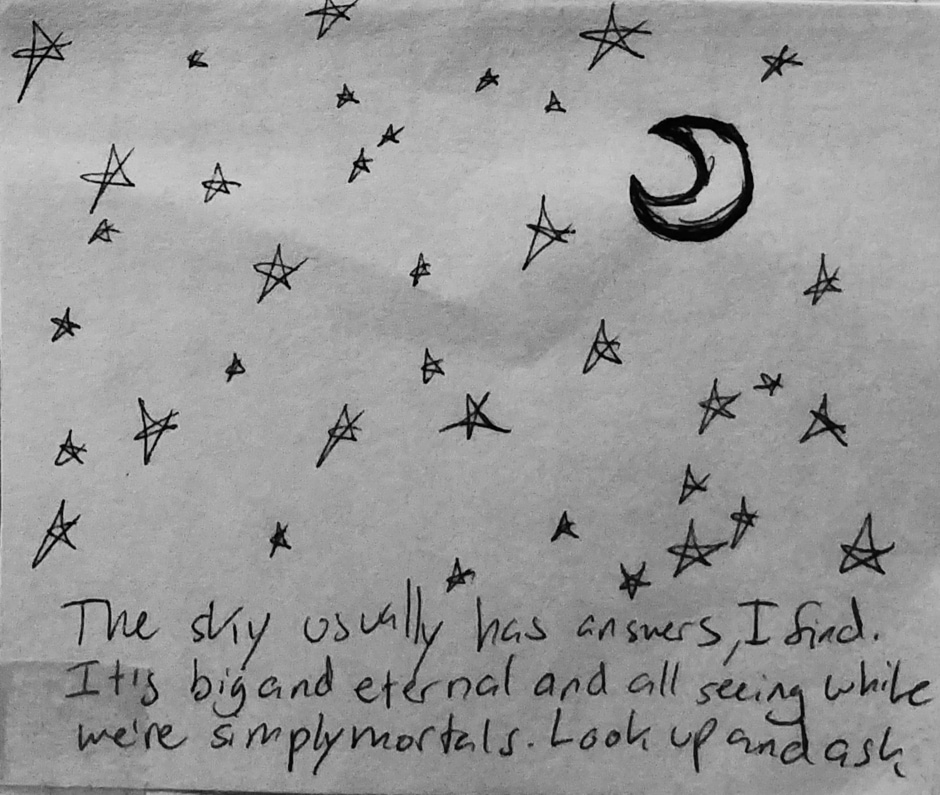 The sky usually has answers, I find.
It's big and eternal and all seeing while
we're simply mortals. Look up and ask.